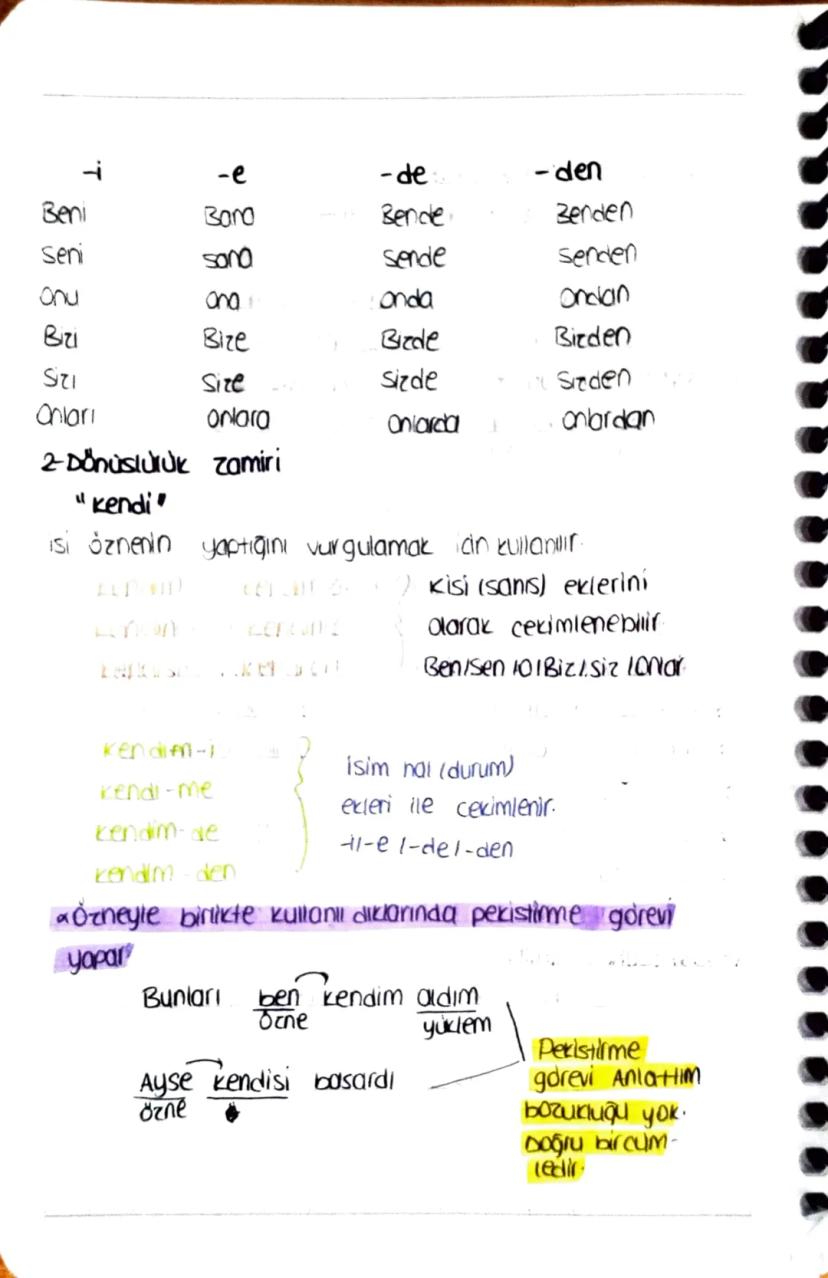 -i -e -de -den
Beni Bana Bende Benden
Seni sana sende senden
Onu ona onda ondan
Bizi Bize Bizde Bizden
Sizi Size sizde sizden
Onları onlara onlarda onlardan
2-Dönüslülük zamiri
"kendi"
isi öznenin yaptığını vurgulamak icin kullanılır.
Kisi (sahıs) eklerini
alarak cekimlenebilir
Ben/Sen/O/Biz/Siz/Onlar
kendim-i
kendi-me
kendim-de
kendim-den
isim hal (durum)
ekleri ile cekimlenir.
-i/-e/-de/-den
Özneyle birlikte kullanıldıklarında pekistirme görevi
yapar
Bunları ben kendim aldım
özne yüklem
Ayse kendisi basardı
özne
Pekistirme
görevi Anlatım
bozukluğu yok.
Doğru bir cüm-
ledir.